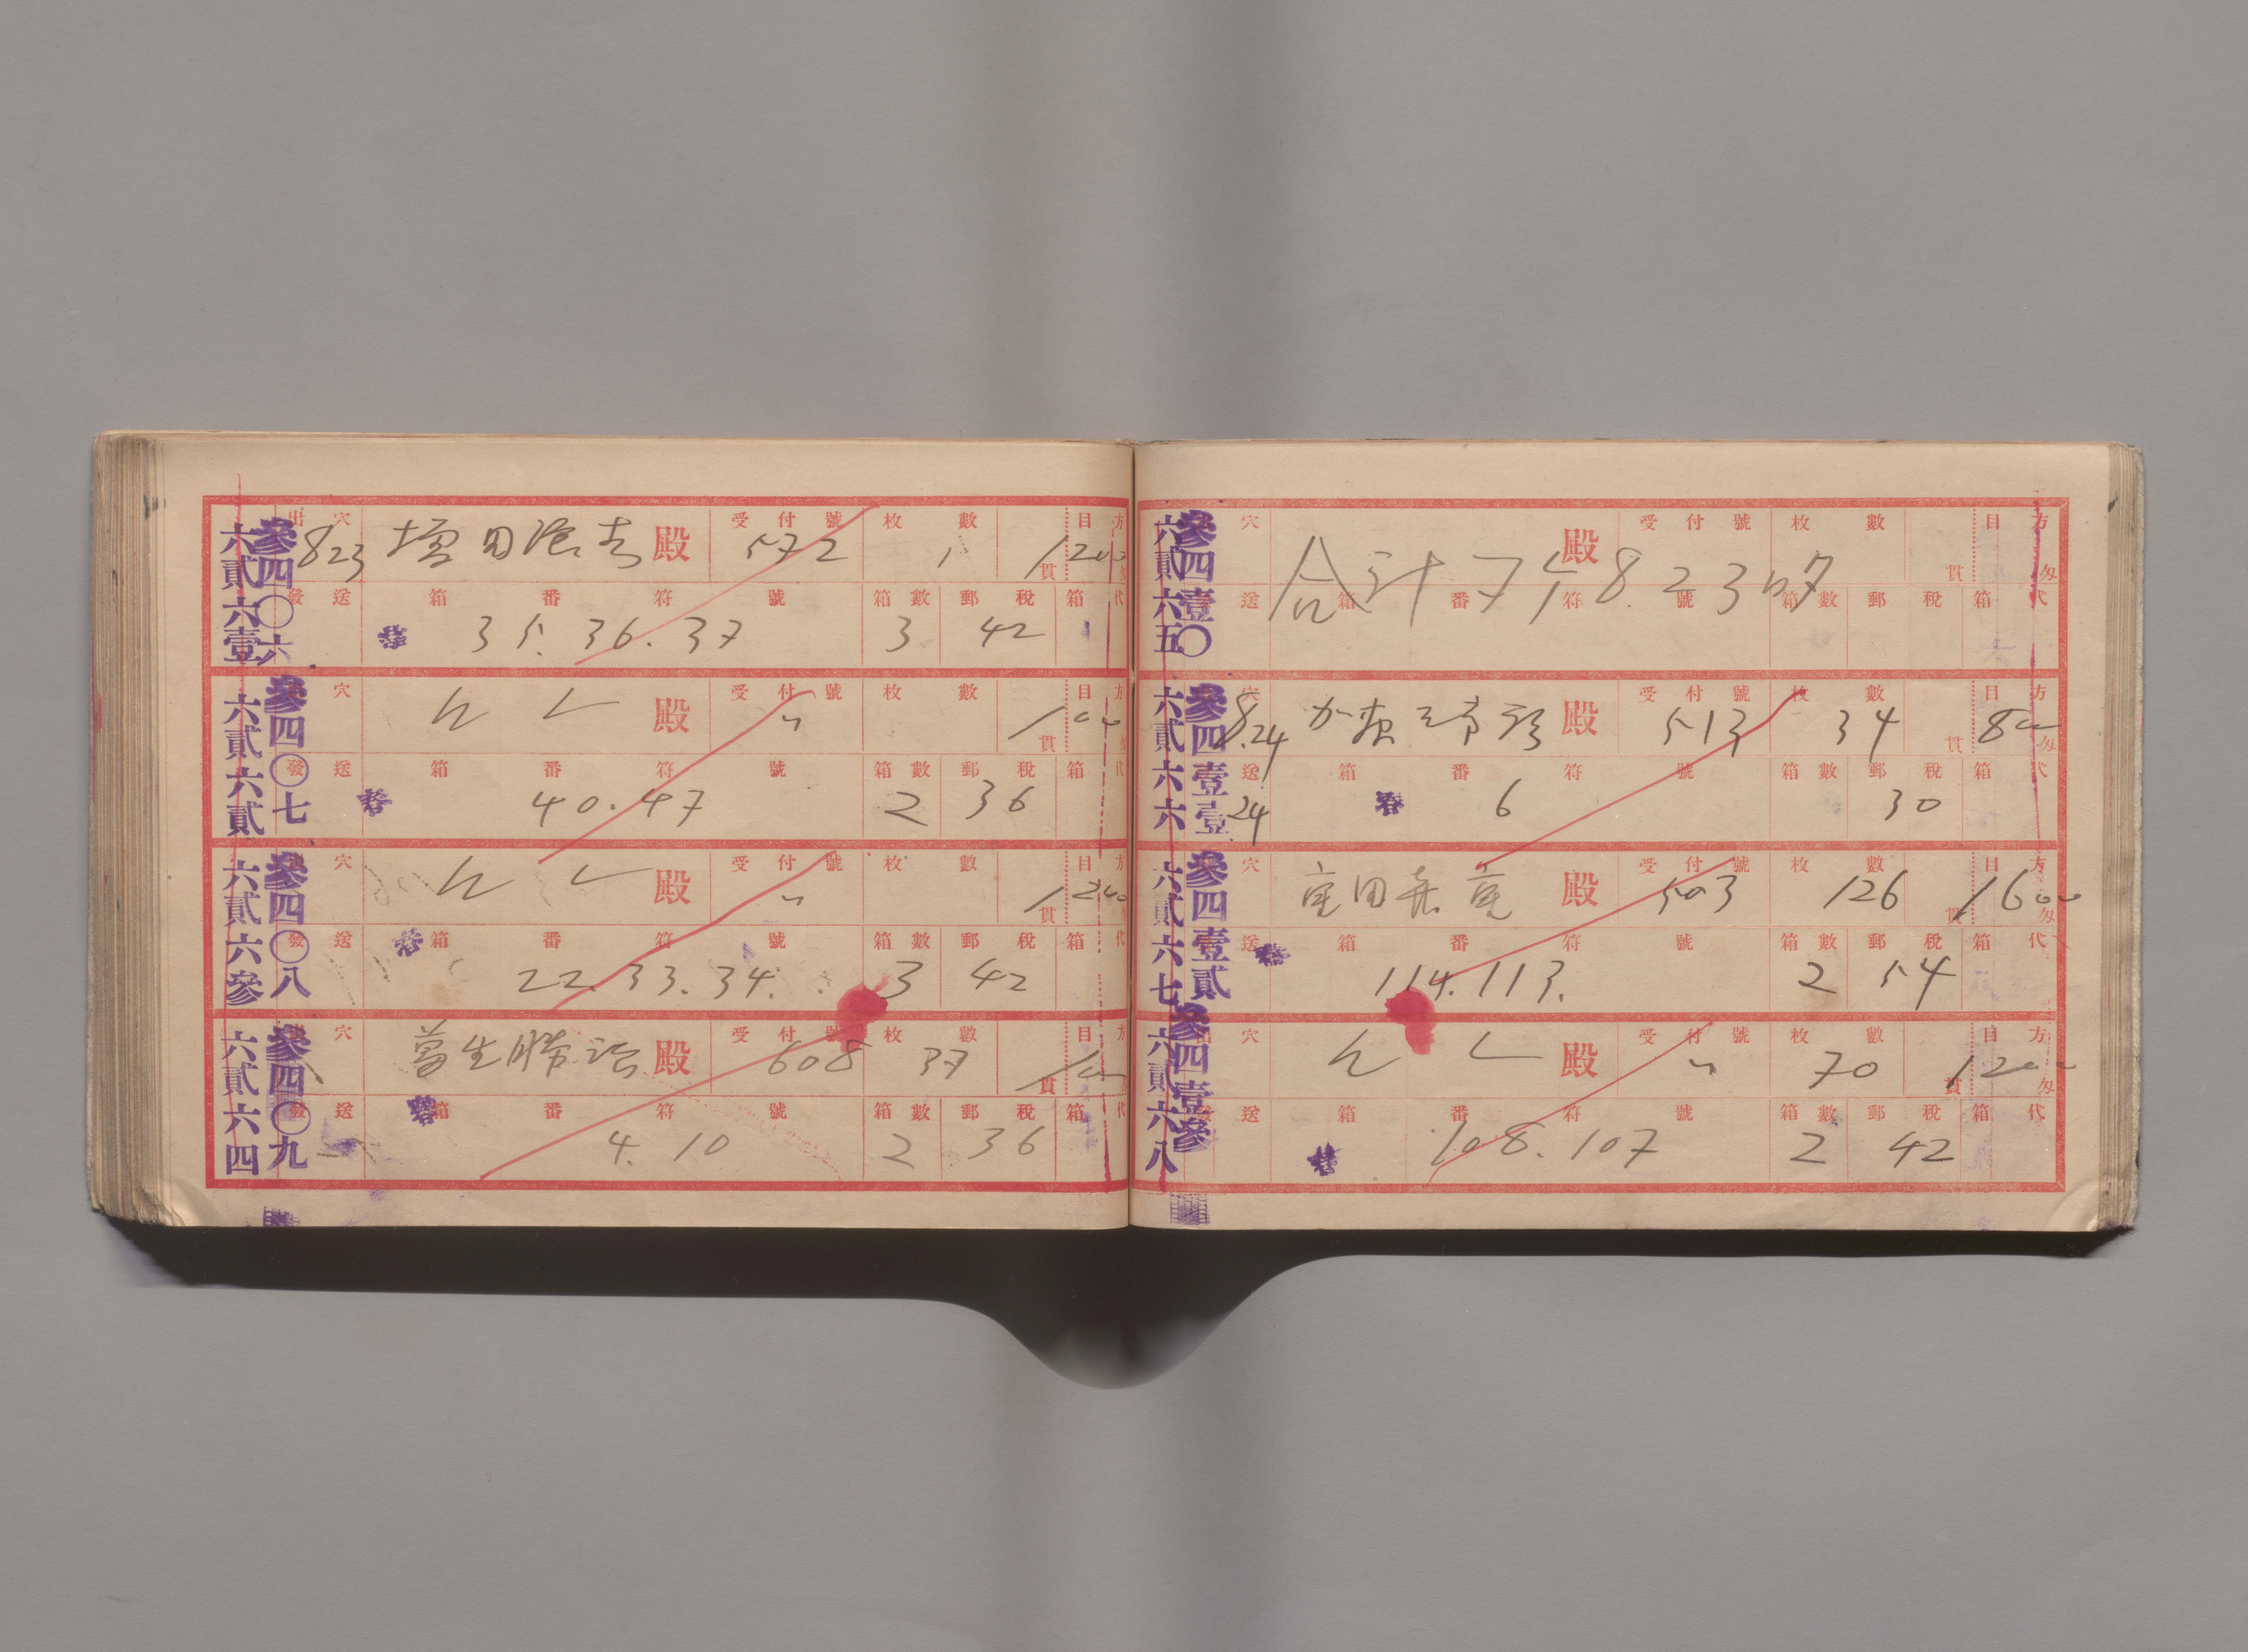 六貳六壹 參四〇六 出 穴 殿 受付號 枚數 目方
823 増田 572 1 1200 貫 匁
發送 箱番符號 箱數 郵稅 箱代
35. 36. 37 3 42
六貳六貳 參四〇七 穴 殿 受付號 枚數 目方
〃 貫 匁
發送 箱番符號 箱數 郵稅 箱代
40. 47 2 36
六貳六參 參四〇八 穴 殿 受付號 枚數 目方
〃 1240 貫 匁
發送 箱番符號 箱數 郵稅 箱代
22. 33. 34. 3 42
六貳六四 參四〇九 穴 殿 受付號 枚數 目方
生勝 608 37 貫 匁
發送 箱番符號 箱數 郵稅 箱代
4. 10 2 36
六貳六五 參四壹〇 穴 殿 受付號 枚數 目方
合計 748.23 貫 匁
送 箱番符號 箱數 郵稅 箱代
六貳六六 參四壹壹 穴 殿 受付號 枚數 目方
8.24 513 34 貫 匁
送 箱番符號 箱數 郵稅 箱代
24 6 30
六貳六七 參四壹貳 穴 殿 受付號 枚數 目方
田 503 126 1600 貫 匁
送 箱番符號 箱數 郵稅 箱代
114. 113. 2 54
六貳六八 參四壹參 出 穴 殿 受付號 枚數 目方
〃 70 1200 貫 匁
發送 箱番符號 箱數 郵稅 箱代
108. 107 2 42